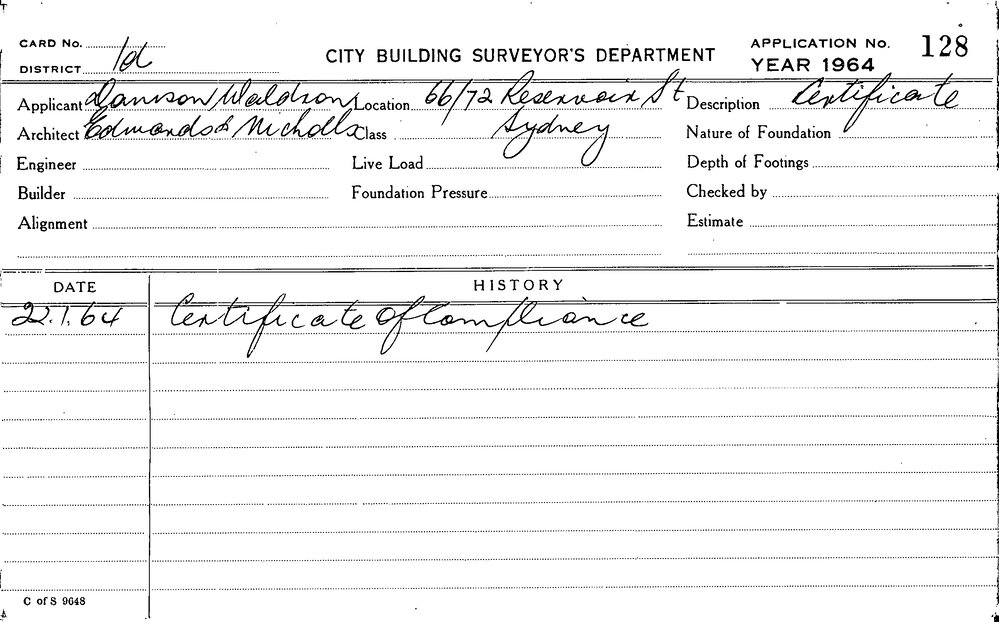 CARD No. 1d CITY BUILDING SURVEYOR'S DEPARTMENT APPLICATION No. 128
DISTRICT YEAR 1964
Applicant Dawson Waldron Location 66/72 Reservoir St Description Certificate
Architect Edwards & Nicholls Class Sydney Nature of Foundation
Engineer Live Load Depth of Footings
Builder Foundation Pressure Checked by
Alignment Estimate
DATE HISTORY
22.1.64 Certificate of Compliance
C of S 9648